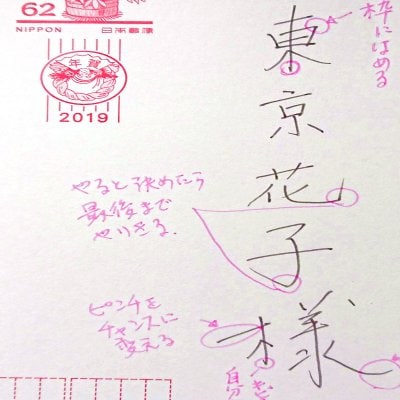 62
NIPPON 日本郵便
年賀
2019
東京花子様
枠にはめる
やると決めたら
最後まで
やりきる。
ピンチを
チャンスに
変える
自分